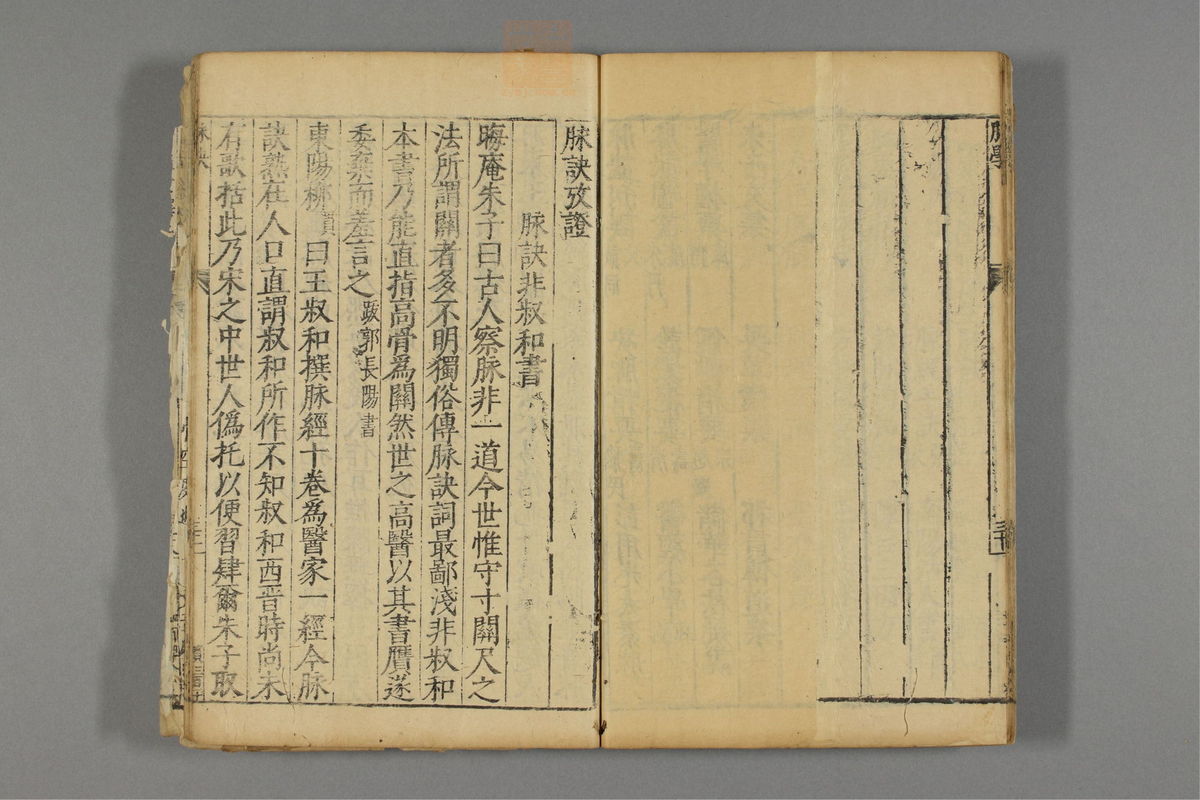 脈學
脉訣攷證
脉訣非叔和書
晦庵朱子曰古人察脉非一道今世惟守寸關尺之
法所謂關者多不明獨俗傳脉訣詞最鄙淺非叔和
本書乃能直指高骨爲關然世之高醫以其書贋遂
委棄而羞言之跋郭長陽書
東陽柳貫曰王叔和撰脉經十卷爲醫家一經今脉
訣熟在人口直謂叔和所作不知叔和西晋時尚未
有歌括此乃宋之中世人僞托以便習肄爾朱子取